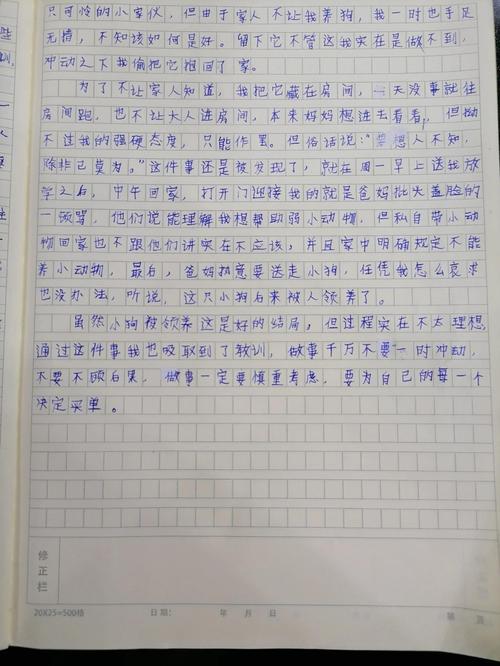 只可怜的小家伙，但由于家人不让我养狗，我一时也手足
无措，不知该如何是好。留下它不管这我实在是做不到，
冲动之下我偷把它抱回了家。
为了不让家人知道，我把它藏在房间，一天没事就往
房间跑，也不让大人进房间，本来妈妈想进去看看，但拗
不过我的强硬态度，只能作罢。但俗话说："要想人不知，
除非己莫为。"这件事还是被发现了，就在周一早上送我放
学之后，中午回家，打开门迎接我的就是爸妈批头盖脸的
一顿骂，他们说能理解我想帮助弱小动物，但私自带小动
物回家也不跟他们讲实在不应该，并且家中明确规定不能
养小动物，最后，爸妈执意要送走小狗，任凭我怎么哀求
也没办法，听说，这只小狗后来被人领养了。
虽然小狗被领养这是好的结局，但过程实在不太理想，
通过这件事我也吸取到了教训，做事千万不要一时冲动，
不要不顾后果，做事一定要慎重考虑，要为自己的每一个
决定买单。
修正栏
20X25=500格 日期： 年 月 日 第 页